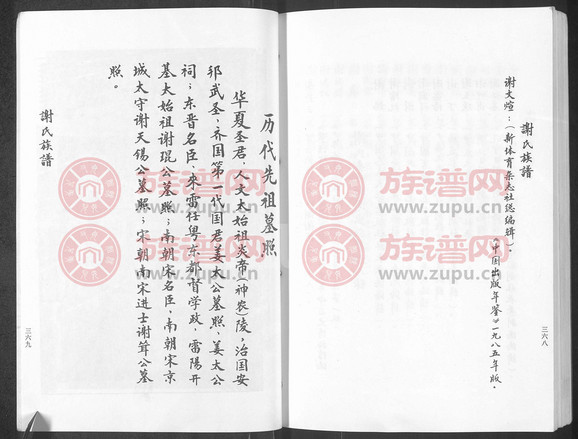 謝氏族譜
谢文煊：（新体育杂志社总编辑）．
《中国出版年鉴》一九八五年版．
三六八
历代先祖墓照
华夏圣君，人文太始祖炎帝（神农）陵，治国安
邦武圣，齐国第一代国君姜太公墓照、姜太公
祠；东晋名臣、來雷任粤东都督学政、雷陽开
基太始祖谢琨公墓照；南朝宋名臣、南朝宋京
城太守谢天锡公墓照；宋朝南宋进士谢箕公墓
照。
謝氏族譜
三六九
族谱网
www.zupu.cn
族谱网
www.zupu.cn
族谱网
www.zupu.cn
族谱网
www.zupu.cn